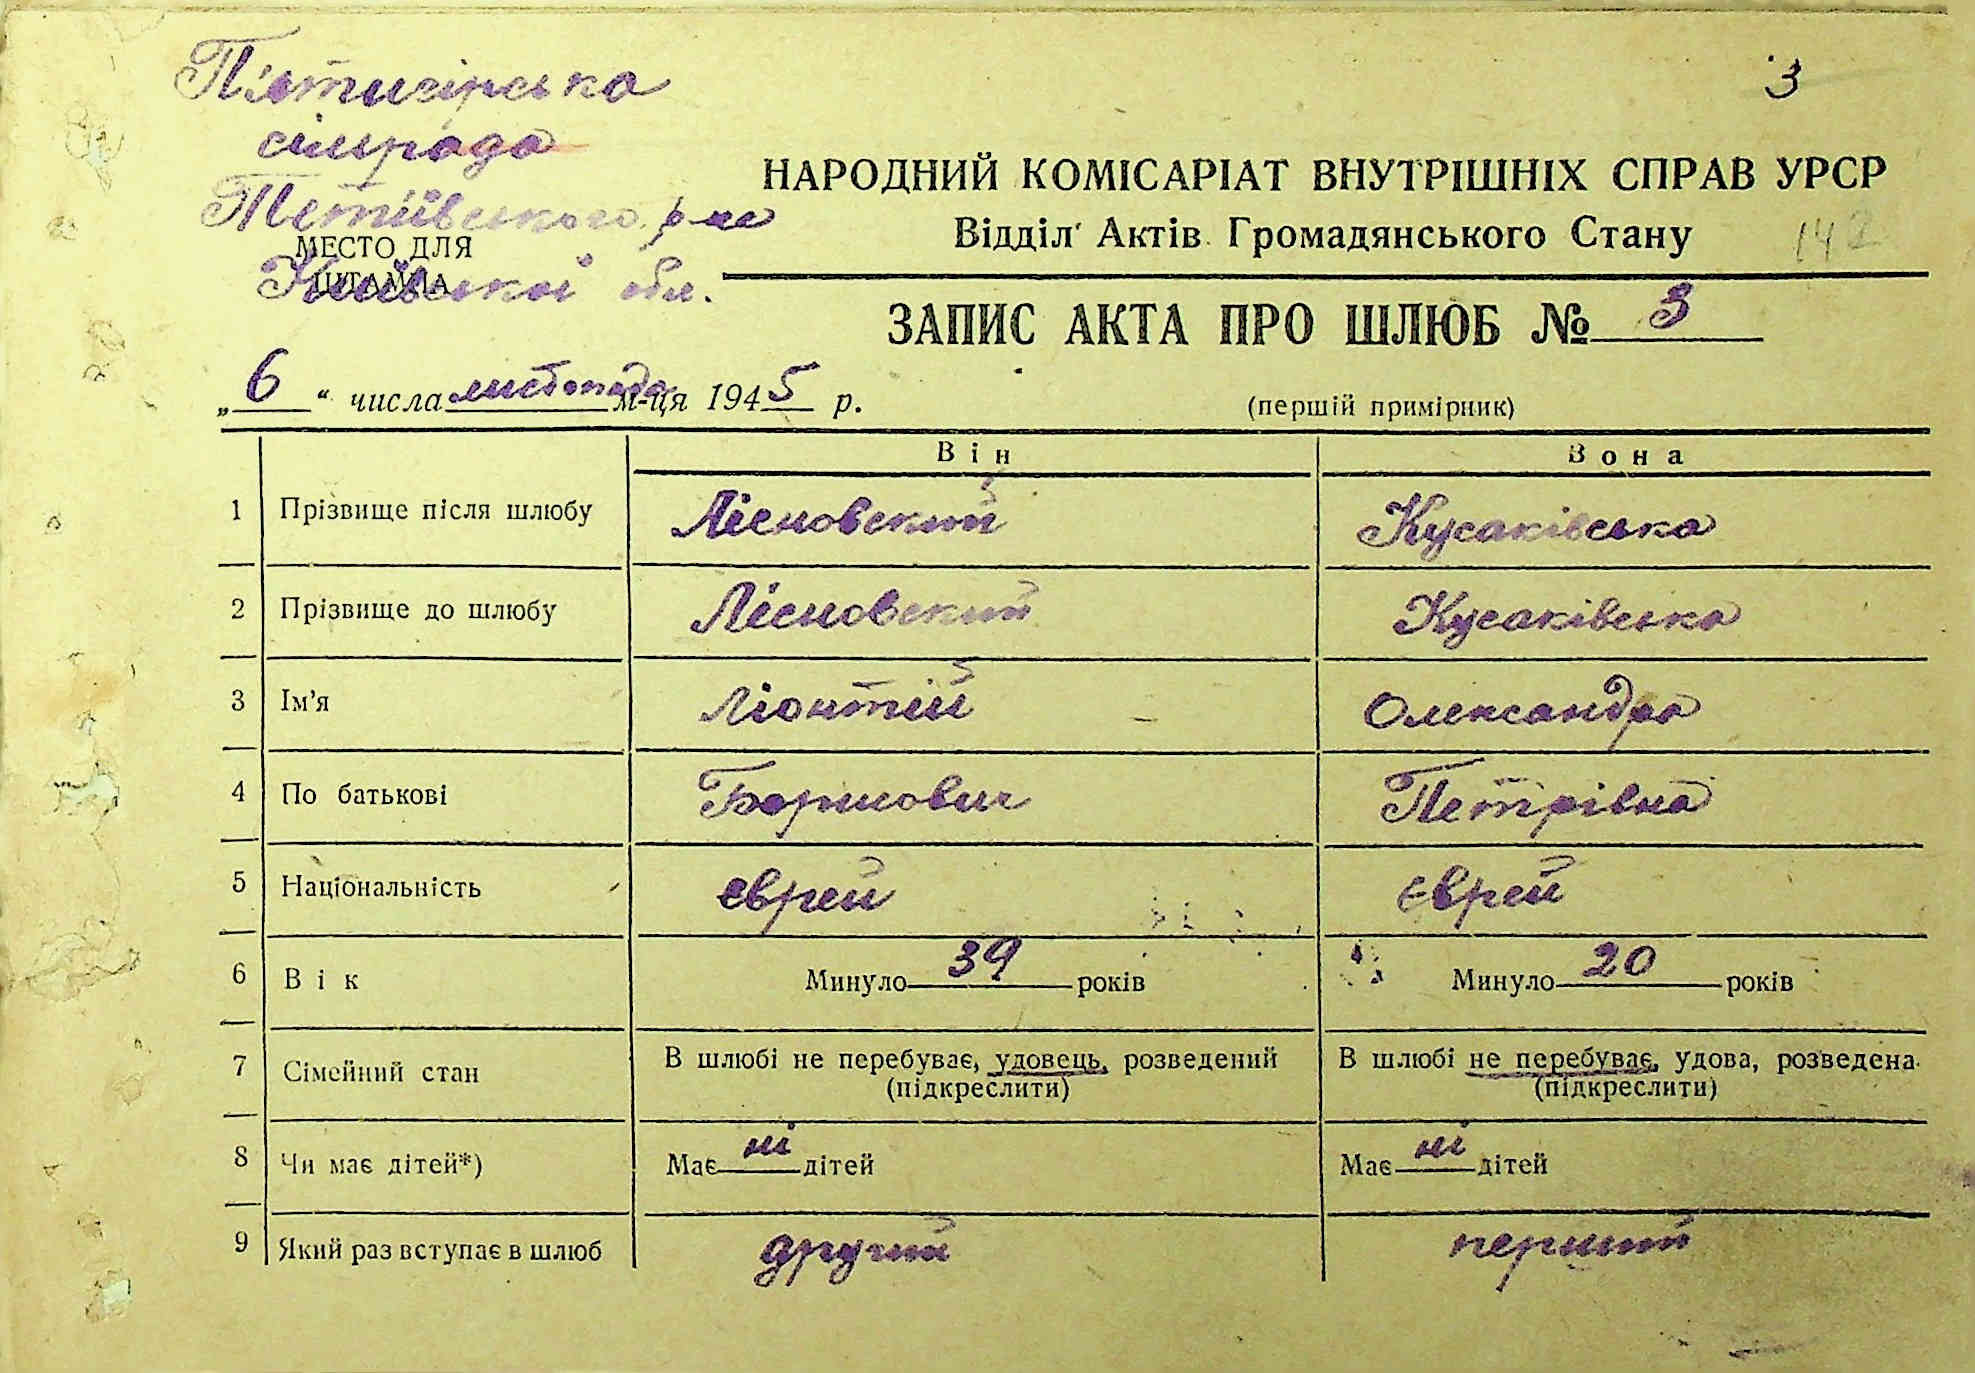 П'ятигірська
сільрада
Тетіївського р-на
МЕСТО ДЛЯ
ШТАМПА
Київської обл.
3
НАРОДНИЙ КОМІСАРІАТ ВНУТРІШНІХ СПРАВ УРСР
Відділ Актів Громадянського Стану
142
ЗАПИС АКТА ПРО ШЛЮБ № 3
„6“ числа листопада м-ця 1945 р.
(перший примірник)
Він Вона
1 Прізвище після шлюбу Лісновский Кусаківська
2 Прізвище до шлюбу Лісновский Кусаківська
3 Ім’я Ліонтій Олександра
4 По батькові Борисович Петрівна
5 Національність єврей єврей
6 Вік Минуло 39 років Минуло 20 років
7 Сімейний стан В шлюбі не перебуває, удовець, розведений В шлюбі не перебуває, удова, розведена
(підкреслити) (підкреслити)
8 Чи має дітей*) Має ні дітей Має ні дітей
9 Який раз вступає в шлюб другий перший